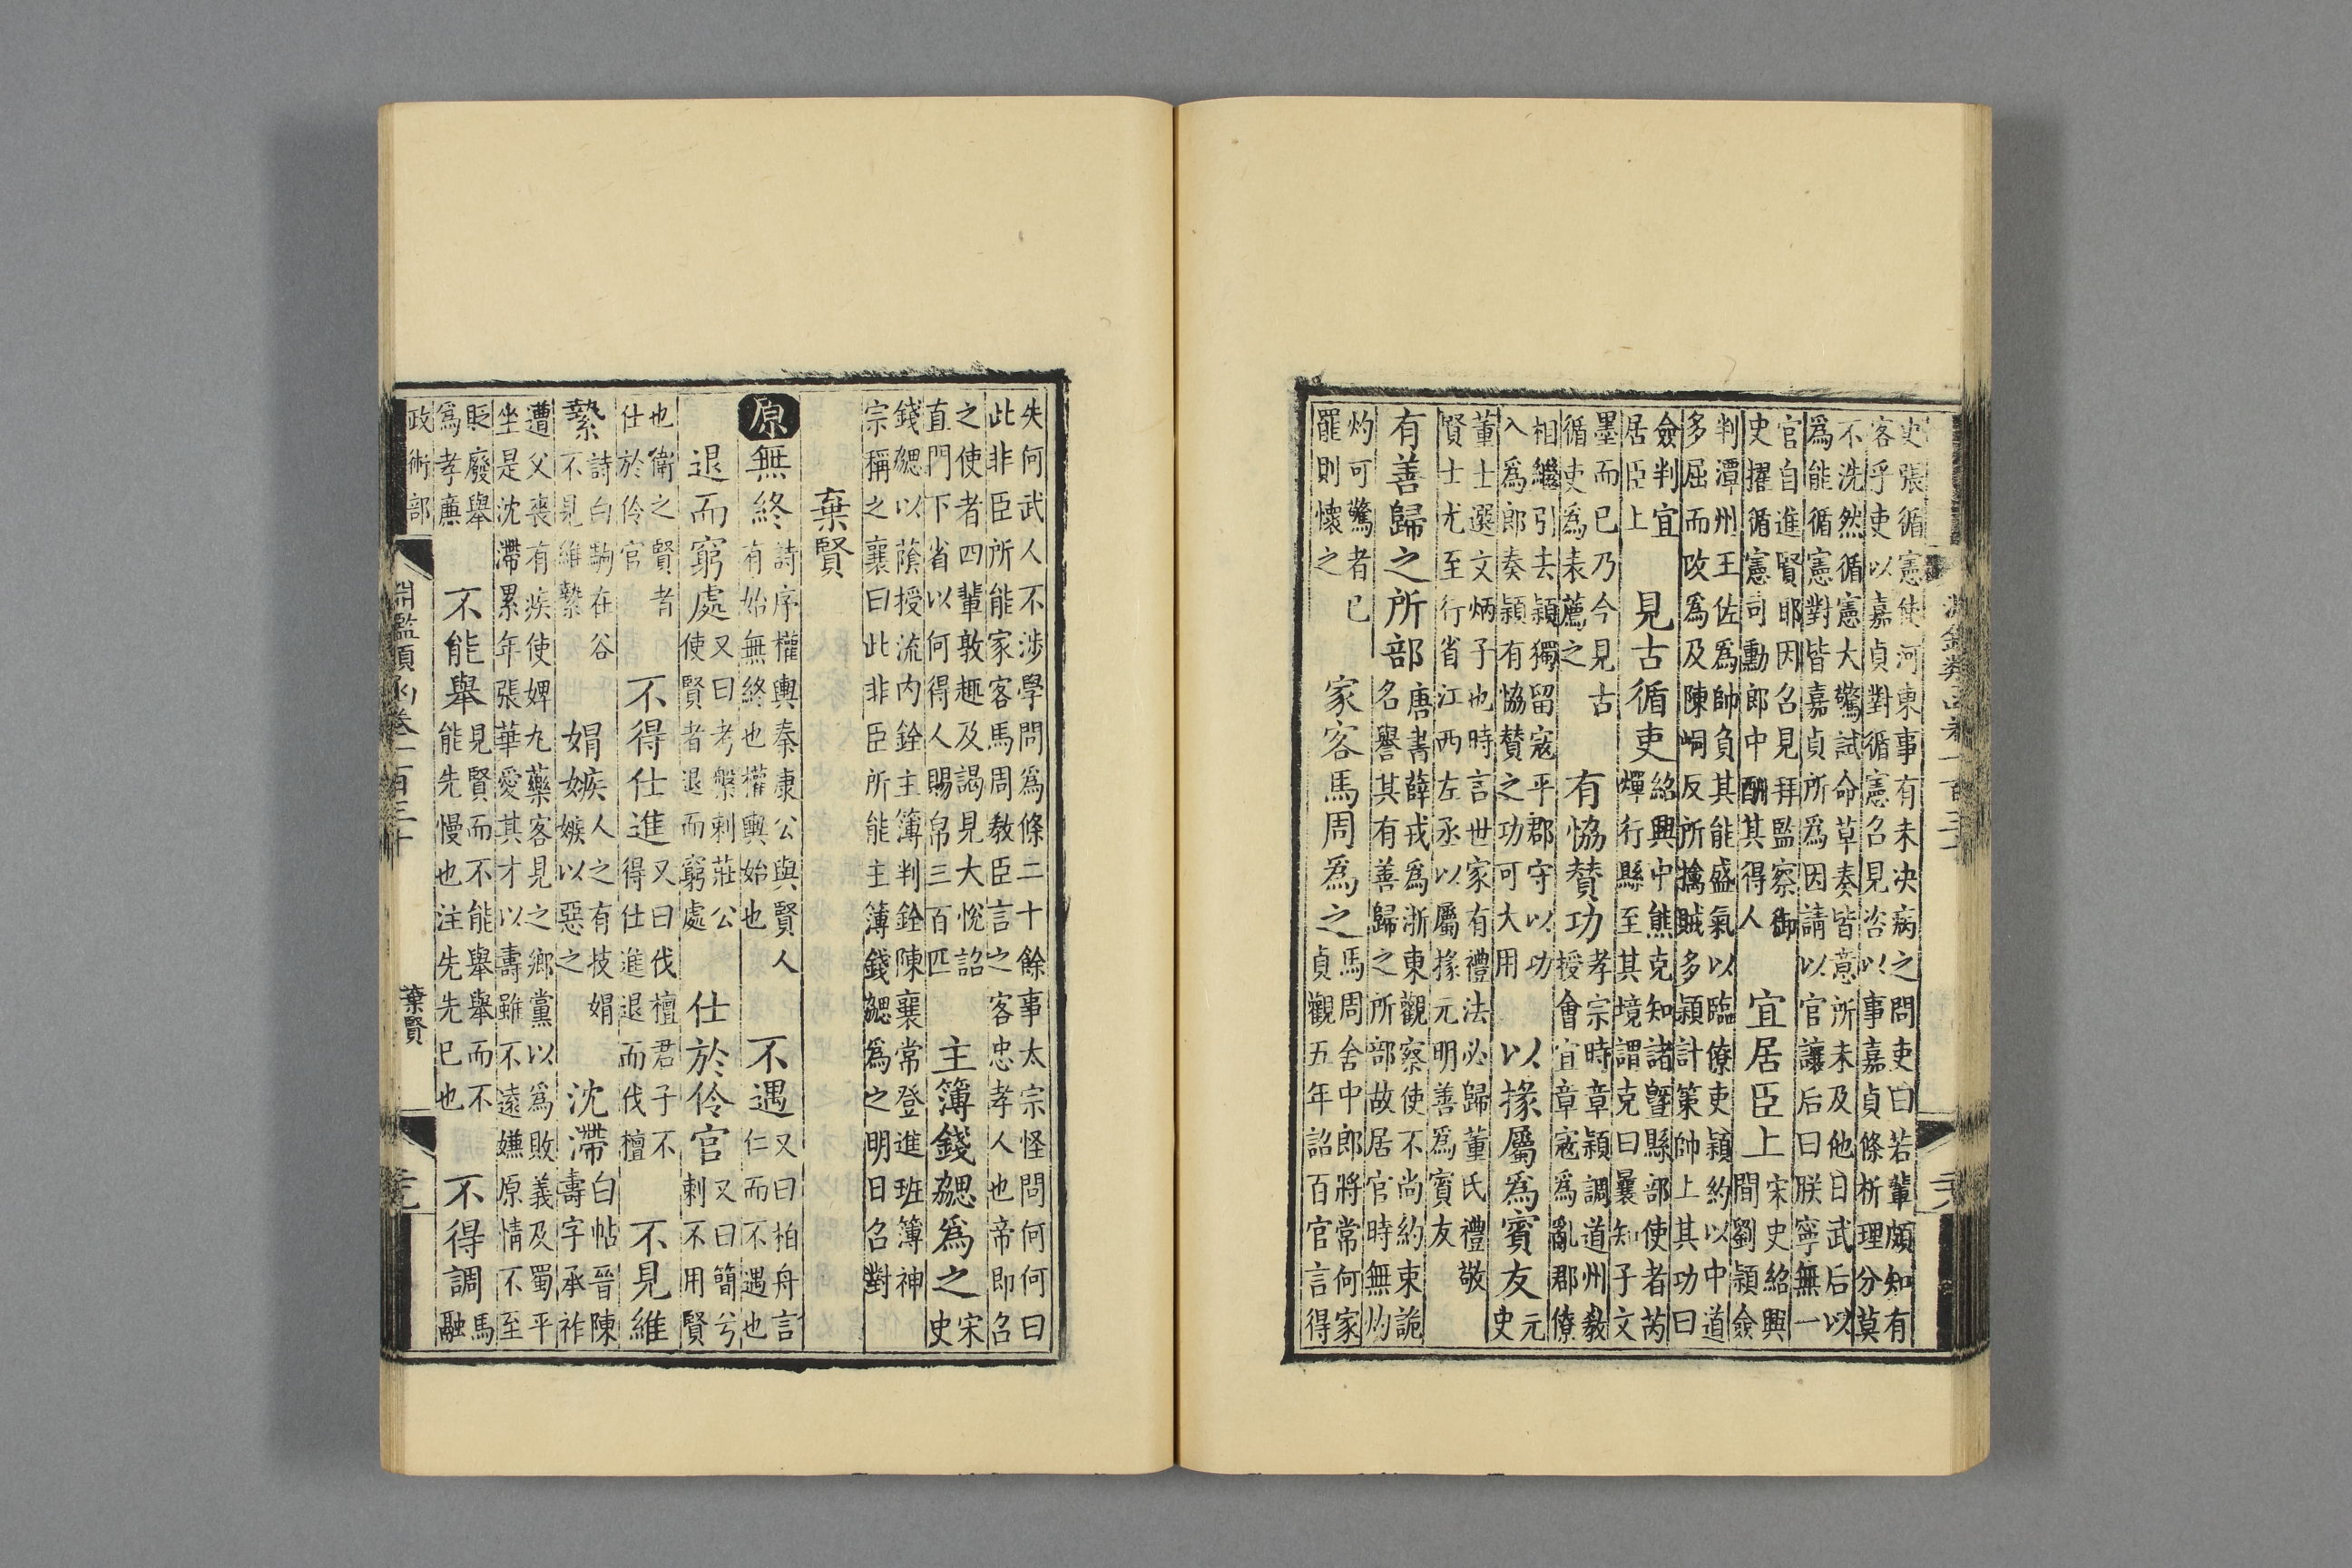 史張循憲使河東事有未决病之問吏曰若輩頗知有
客乎吏以嘉貞對循憲召見咨以事嘉貞條析理分莫
不洗然循憲大驚試命草奏皆意所未及他日武后以
為能循憲對皆嘉貞所為因請以官讓后曰朕寧無一
官自進賢耶因召見拜監察御
史擢循憲司勳郎中酬其得人
宜居臣上
宋史紹興
間劉頴僉
判潭州王佐為帥負其能盛氣以臨僚吏頴約以中道
多屈而改為及陳峒反所擒賊多頴計策帥上其功曰
僉判宜
居臣上
見古循吏
紹興中熊克知諸曁縣部使者芮
燁行縣至其境謂克曰曩知子文
墨而已乃今見古
循吏為表薦之
有恊贊功
孝宗時章頴調道州教
授會宜章寇為亂郡僚
相繼引去頴獨留寇平郡守以功
入為郎奏頴有恊贊之功可大用
以掾屬為賓友
元
史
董士選文炳子也時言世家有禮法必歸董氏禮敬
賢士尤至行省江西左丞以屬掾元明善為賓友
有善歸之所部
唐書薛戎為浙東觀察使不尚約束詭
名譽其有善歸之所部故居官時無灼
灼可驚者已
罷則懷之
家客馬周為之
馬周舍中郎將常何家
貞觀五年詔百官言得
失何武人不涉學問為條二十餘事太宗怪問何何曰
此非臣所能家客馬周教臣言之客忠孝人也帝即召
之使者四輩敦趣及謁見大悅詔
直門下省以何得人賜帛三百匹
主簿錢勰為之
宋
史
錢勰以蔭授流内銓主簿判銓陳襄常登進班簿神
宗稱之襄曰此非臣所能主簿錢勰為之明日召對
棄賢
原
無終
詩序權輿秦康公與賢人
有始無終也權輿始也
不遇
又曰柏舟言
仁而不遇也
退而窮處
又曰考槃刺莊公
使賢者退而窮處
仕於伶官
又曰簡兮
刺不用賢
也衛之賢者
仕於伶官
不得仕進
又曰伐檀君子不
得仕進退而伐檀
不見維
縶
詩白駒在谷
不見維縶
娟嫉
人之有技娟
嫉以惡之
沈滯
白帖晉陳
壽字承祚
遭父喪有疾使婢丸藥客見之鄉黨以為敗義及蜀平
坐是沈滯累年張華愛其才以壽雖不遠嫌原情不至
貶廢舉
為孝廉
不能舉
見賢而不能舉舉而不
能先慢也注先先己也
不得調
馬
融
政術部
淵鑑類函卷一百三十
棄賢